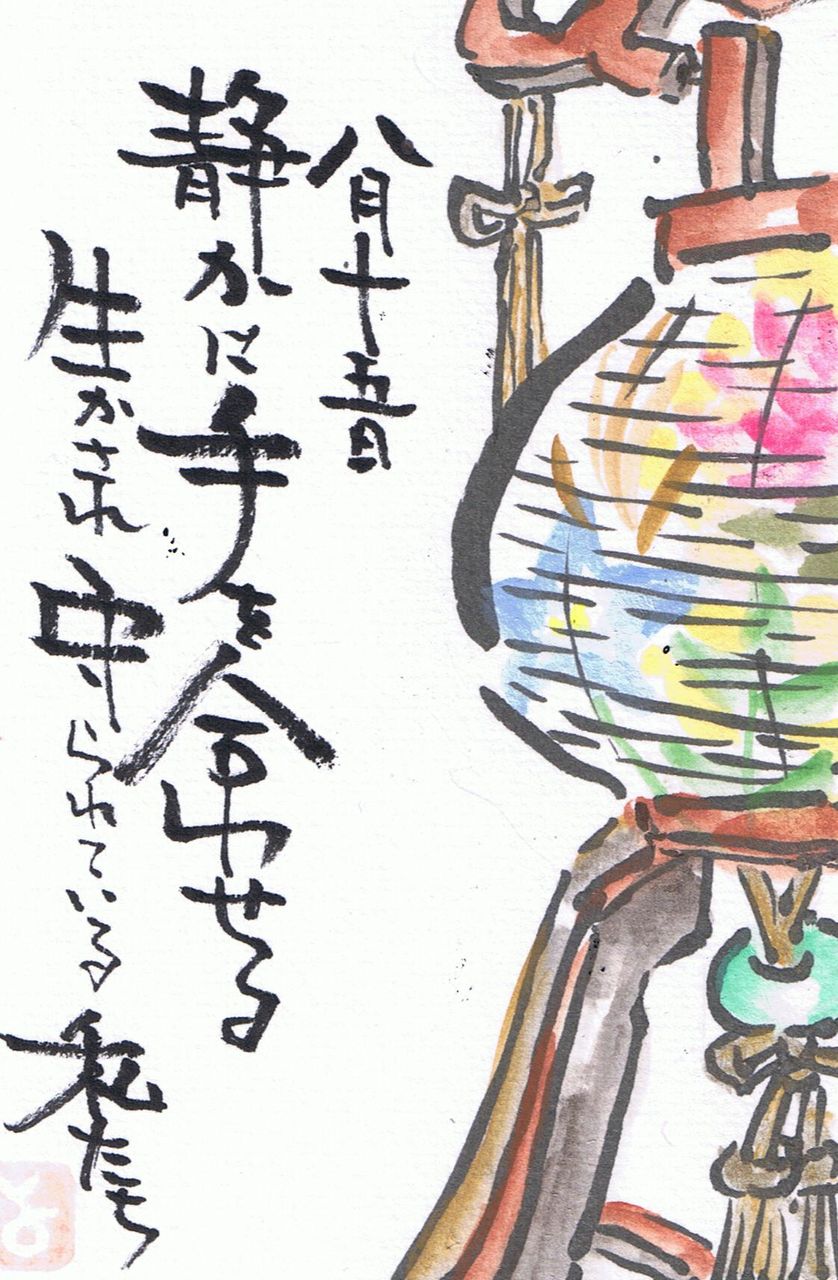 八月十五日
静かに手を合わせる
生かされ守られている私たち
とよ